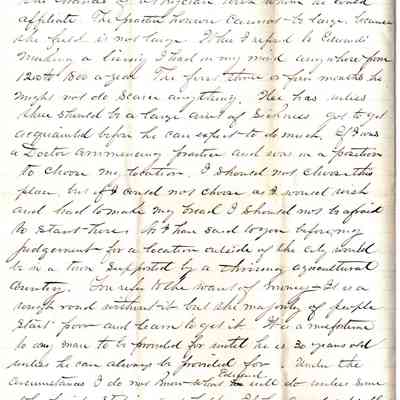 affiliate. The practice however cannot be large because
the field is not large. When I refered to Edwards
making a living I had in my mind anywhere from
1200 to 1500 a year. The first three or four months he
might not do scarce anything. He has unless
there should be a large amt of Sickness got to get
acquainted before he can expect to do much. If I was
a Doctor commencing practice and was in a position
to choose my location I should not choose this
place, but if I could not choose as I would wish
and had to make my bread I should not be afraid
to start here. As I have said to you before, my
judgement for a location outside of the City would
be in a town supported by a thriving agricultural
country. You refer to the want of money - It is a
rough road without it but the majority of people
start poor and learn to get it. It is a misfortune
to any man to be provided for until he is 30 years old
unless he can always be provided for. Under the
circumstances I do not know what Edward will do unless some